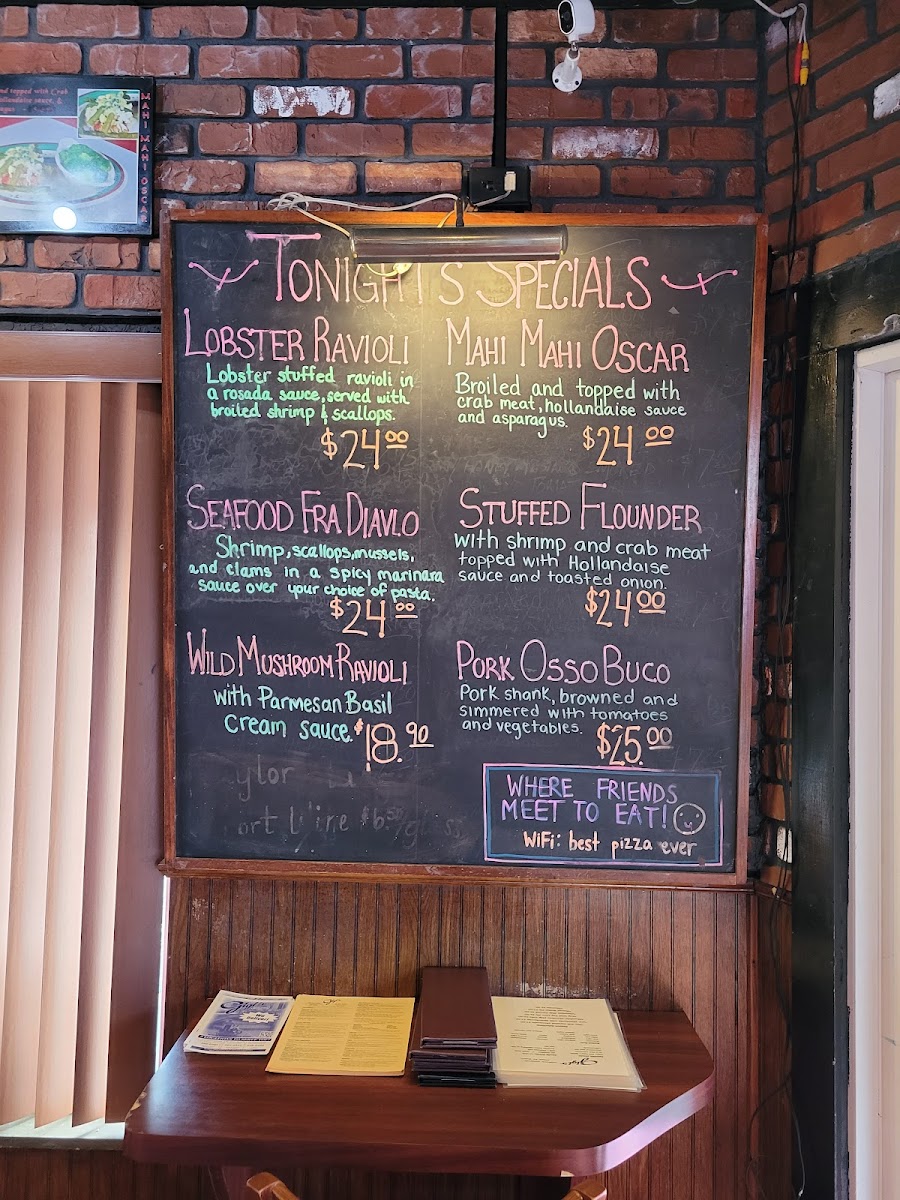 and topped with Crab
Hollandaise sauce, &
MAHI MAHI OSCAR
TONIGHT'S SPECIALS
LOBSTER RAVIOLI
Lobster stuffed ravioli in
a rosada sauce, served with
broiled shrimp & scallops.
$24.00
SEAFOOD FRA DIAVLO
Shrimp, scallops, mussels,
and clams in a spicy marinara
sauce over your choice of pasta.
$24.00
WILD MUSHROOM RAVIOLI
with Parmesan Basil
cream sauce.
$18.90
MAHI MAHI OSCAR
Broiled and topped with
crab meat, hollandaise sauce
and asparagus.
$24.00
STUFFED FLOUNDER
with shrimp and crab meat
topped with Hollandaise
sauce and toasted onion.
$24.00
PORK OSSO BUCO
Pork shank, browned and
simmered with tomatoes
and vegetables.
$25.00
WHERE FRIENDS
MEET TO EAT!
WiFi: best pizza ever
We Deliver!